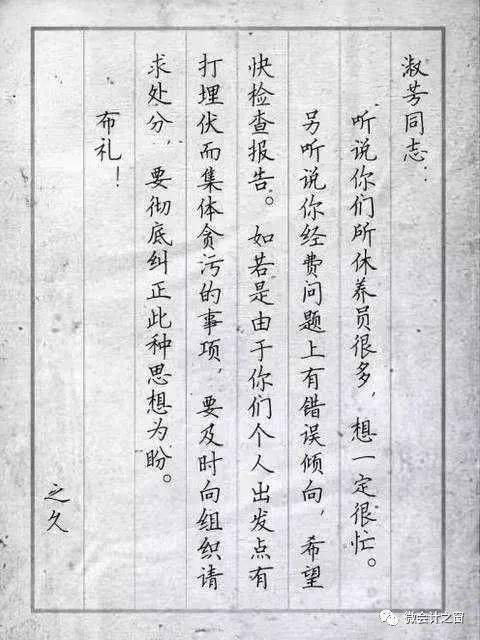 淑芳同志：
听说你们所休养员很多，想一定很忙。
另听说你经费问题上有错误倾向，希望
快检查报告。如若是由于你们个人出发点有
打埋伏而集体贪污的事项，要及时向组织请
求处分，要彻底纠正此种思想为盼。
布礼！
之久
微会计之窗